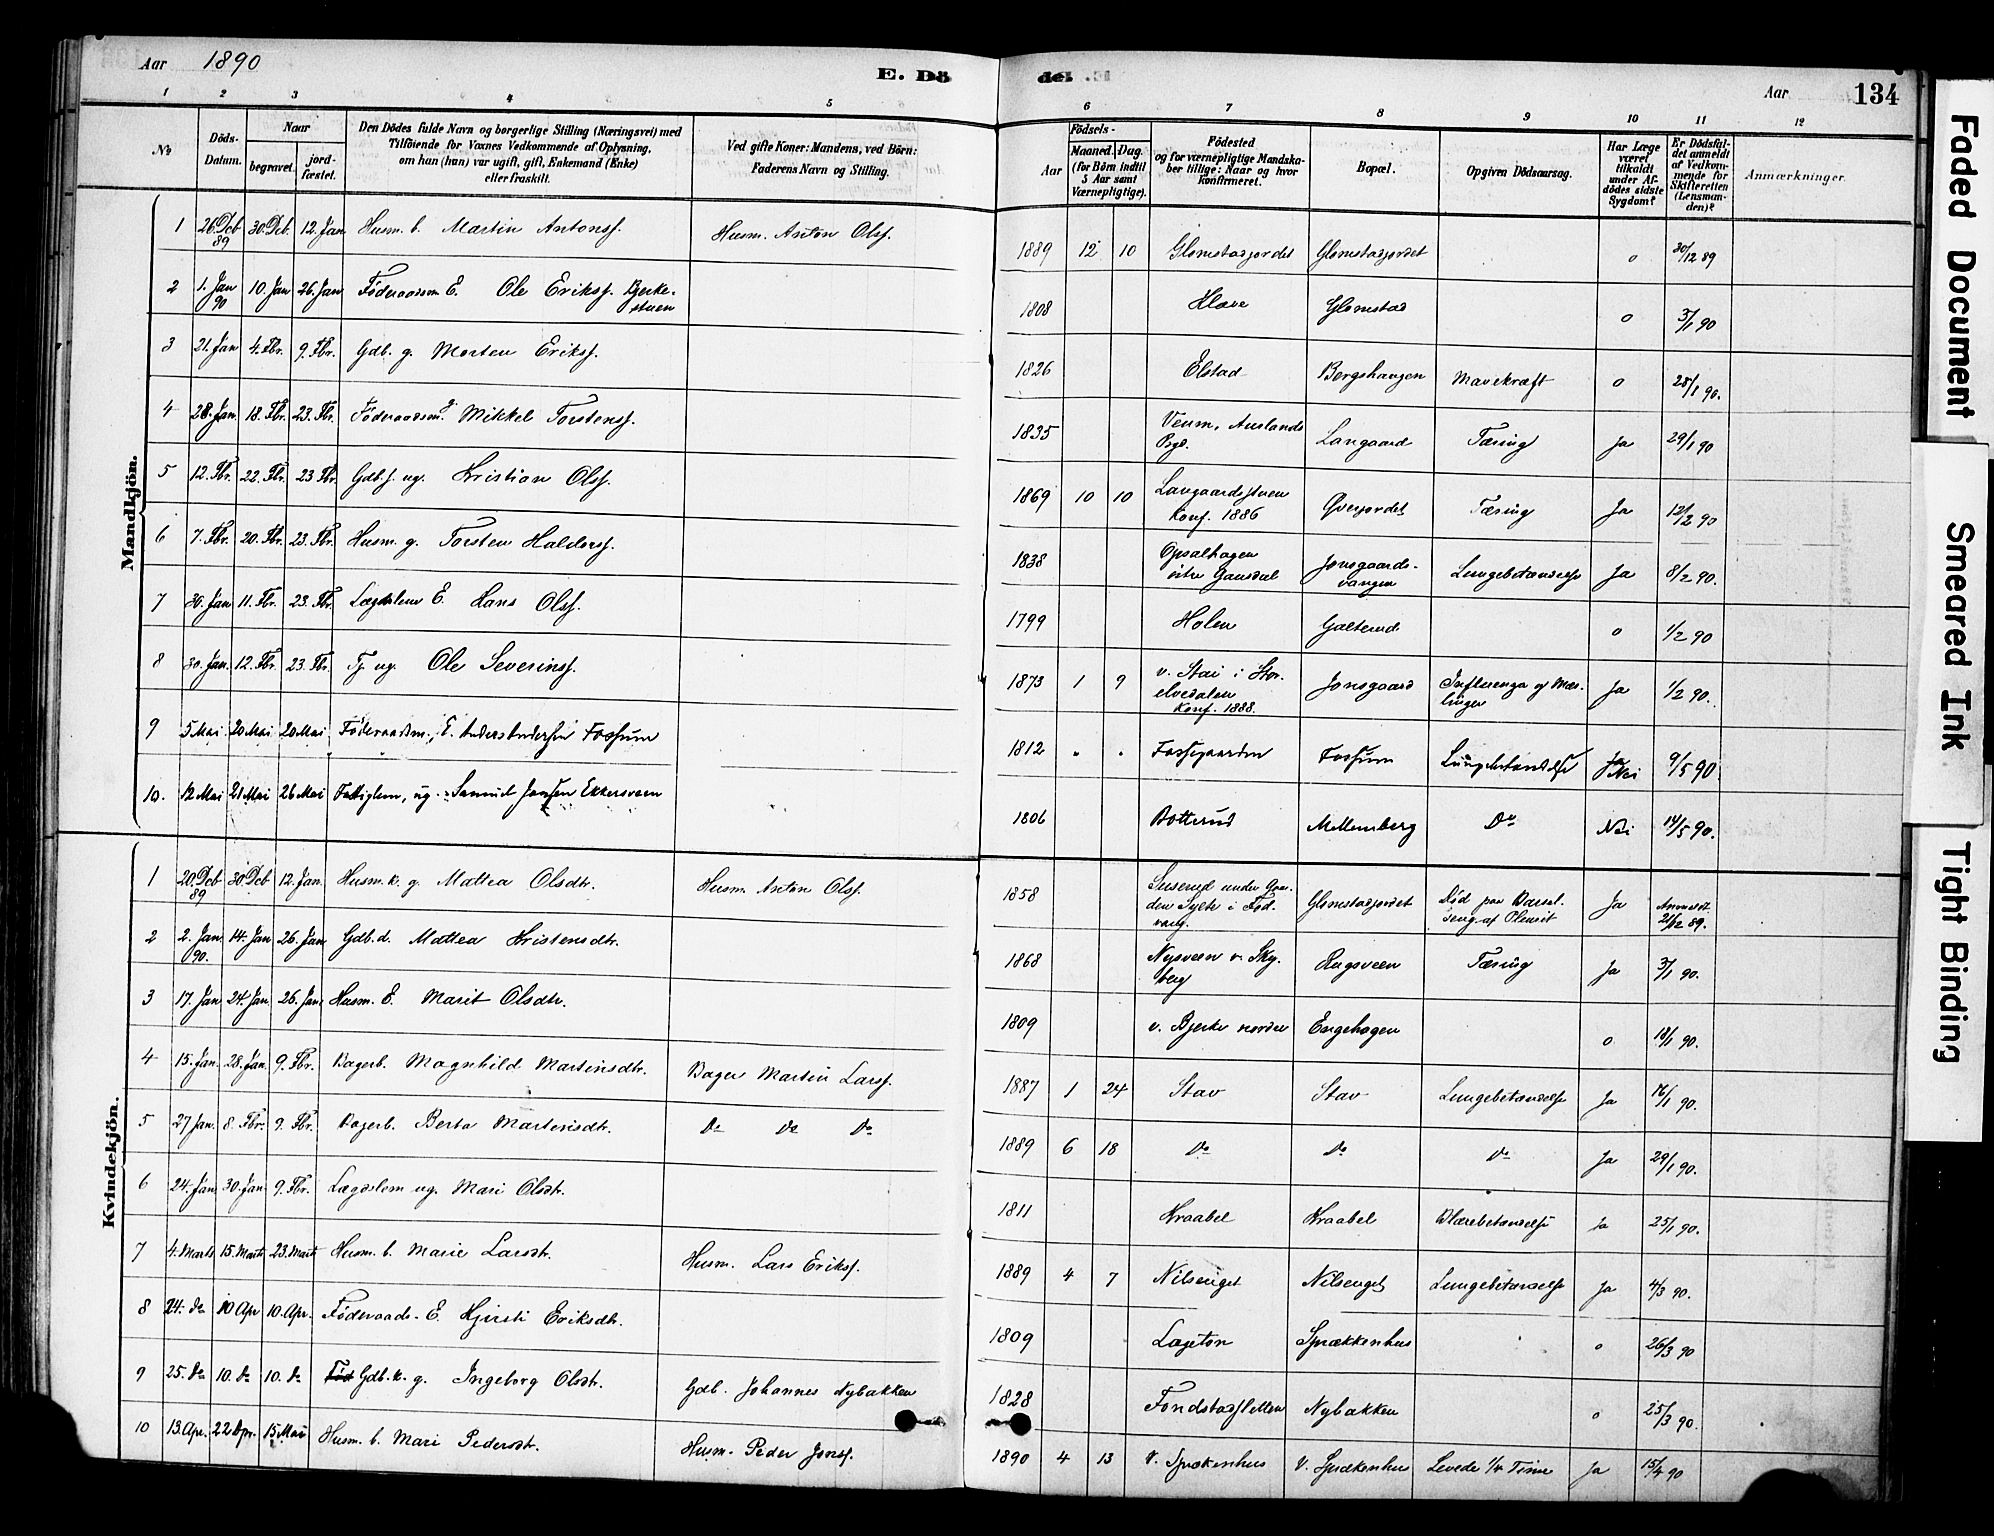 Aar 1890
E. Dö
del.
Aar
134
1 2 3 4 5 6 7 8 9 10 11 12
No
Döds-Datum.
Naar
begravet.
jord-fæstet.
Den Dödes fulde Navn og borgerlige Stilling (Næringsvei) med
Tilföiende for Voxnes Vedkommende af Oplysning,
om han (hun) var ugift, gift, Enkemand (Enke)
eller fraskilt.
Ved gifte Koner: Mandens, ved Börn:
Faderens Navn og Stilling.
Födsels-
Aar
Maaned. Dag.
(for Börn indtil
5 Aar samt
Værnepligtige).
Födested
og for værnepligtige Mandska-
ber tillige: Naar og hvor
konfirmeret.
Bopæl.
Opgiven Dödsaarsag.
Har Læge
været
tilkaldt
under Af-
dödes sidste
Sygdom?
Er Dödsfal-
det anmeldt
af Vedkom-
mende for
Skifteretten
(Lensman-
den)?
Anmærkninger.
Mandkjön.
1 26. Deb 89 30. Deb. 12. Jan Husm. b. Martin Antonsf. Husm. Anton Olsf. 1889 12 10 Glomstadjordet Glomstadjordet o 30/12 89
2 1. Jan 90 10. Jan 26. Jan Föderaadsm E. Ole Eriksf. Bjerke-stuen 1808 Klæve Glomstad o 3/1 90
3 21. Jan 4. Fbr. 9. Fbr. Gdb. g. Morten Eriksf. 1826 Elstad Bergshaugen Mavekræft o 25/1 90.
4 28. Jan. 18. Fbr. 23. Fbr. Föderaadsm. g. Mikkel Torstensf. 1835 Veum, Auslands Bygd. Langaard Tæring Ja 29/1 90
5 12. Fbr. 22. Fbr. 23 Fbr. Gdb. s. ug. Kristian Olsf. 1869 10 10 Langaardsstuen Konf. 1886 Øverjordet Tæring Ja 12/2 90
6 7. Fbr. 20. Fbr. 23. Fbr. Husm. g. Torsten Haldorsf. 1838 Opsalhagen östre Gausdal Jonsgaards-vangen Lungebetændelse Ja 8/2 90.
7 30. Jan 11. Fbr. 23. Fbr Lægdslem E. Hans Olsf. 1799 Holen Galterud o 1/2 90
8 30. Jan. 12. Fbr. 23. Fbr Tj ug. Ole Severinsf. 1873 1 9 v. Stai i Stor-elvedalen Konf. 1888. Jonsgaard Influenza og Mæs-linger Ja 1/2 90.
9 5 Mai 20 Mai 20 Mai Föderaadsm., E. Anders Andersen Fossum 1812 " " Fossegaarden Fossum Lungebetændelse Nei 9/5 90
10. 12 Mai 21 Mai 26 Mai Fattiglem, ug. Samuel Jansen Ekkersveen 1806 Botterud Mellemberg Do Nei 14/5 90.
Kvindekjön.
1 20. Deb 89 30 Deb 12. Jan. Husm. k. g. Mattea Olsdtr. Husm. Anton Olsf. 1858 Suserud under Gaar-den Sylte i Fod-vang. Glomstadjordet Död paa Barsel-seng af Pleurit Ja Anmeldt 21/12 89.
2 2. Jan. 90. 14. Jan 26. Jan Gdb. d. Mattea Kristensdtr. 1868 Nysveen v. Sky-berg Rugsveen Tæring Ja 3/1 90.
3 17. Jan 24. Jan. 26. Jan. Husm. E. Marit Olsdtr. 1809 v. Bjerke nordre Engehagen o 18/1 90.
4 15. Jan. 28. Jan. 9. Fbr. Bagerb. Magnhild Martinsdtr. Bager Martin Larsf. 1887 1 24 Stav Stav Lungebetændelse Ja 16/1 90.
5 27 Jan. 8. Fbr. 9. Fbr. Bagerb. Berta Martinsdtr. Do Do Do 1889 6 18 Do Do Do Ja 29/1 90.
6 24. Jan 30. Jan 9. Fbr. Lægdslem ug. Mari Olsdtr. 1811 Kraabel Kraabel Blærebetændelse Ja 25/1 90.
7 4. Marts 15. Marts 23. Marts Husm. b. Marie Larsdtr. Husm. Lars Eriksf. 1889 4 7 Nilsenget Nilsenget Lungebetændelse Ja 4/3 90.
8 24. do 10 Apr 10. Apr. Föderaads. E. Kjersti Eriksdtr. 1809 Lageton Sprækkenhus o 26/3 90
9 25. do 10. do 10. do Gdb. k. g. Ingeborg Olsdtr. Gdb. Johannes Nybakken 1828 Fondstadsletten Nybakken o 25/3 90.
10 13. Apr. 22 Apr. 15 Mai Husm. b. Mari Pedersdtr. Husm. Peder Jonsf. 1890 4 13 V. Sprækenhus V. Sprækenhus Levede 1/4 Time Ja 15/4 90
Faded Document
Smeared Ink
Tight Binding